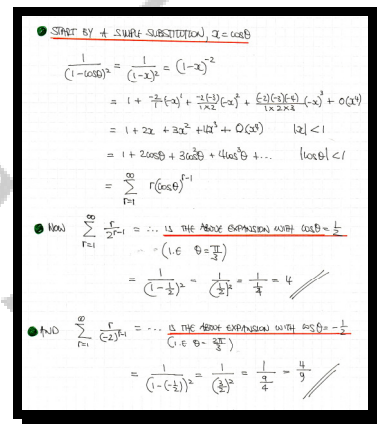 START BY A SIMPLE SUBSTITUTION, x = cosθ
1/(1-cosθ)² = 1/(1-x)² = (1-x)⁻²
= 1 + -2/1 (-x)¹ + -2(-3)/1×2 (-x)² + (-2)(-3)(-4)/1×2×3 (-x)³ + O(x⁴)
= 1 + 2x + 3x² + 4x³ + O(x⁴) |x| < 1
= 1 + 2cosθ + 3cos²θ + 4cos³θ + ... |cosθ| < 1
= ∞ Σ r=1 r(cosθ)^(r-1)
NOW ∞ Σ r=1 r/2^(r-1) = ... IS THE ABOVE EXPANSION WITH cosθ = 1/2
(I.E θ = π/3)
= 1/(1-1/2)² = 1/(1/2)² = 1/(1/4) = 4
AND ∞ Σ r=1 r/(-2)^(r-1) = ... IS THE ABOVE EXPANSION WITH cosθ = -1/2
(I.E θ = 2π/3)
= 1/(1-(-1/2))² = 1/(3/2)² = 1/(9/4) = 4/9